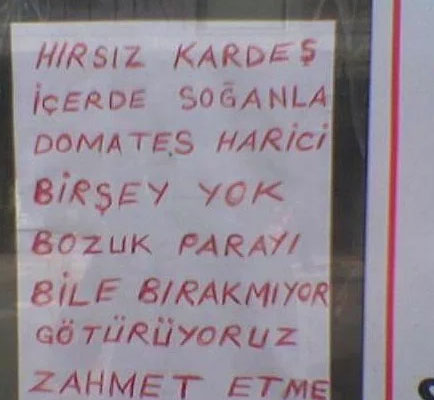 HIRSIZ KARDEŞ
İÇERDE SOĞANLA
DOMATES HARİCİ
BİRŞEY YOK
BOZUK PARAYI
BİLE BIRAKMIYOR
GÖTÜRÜYORUZ
ZAHMET ETME